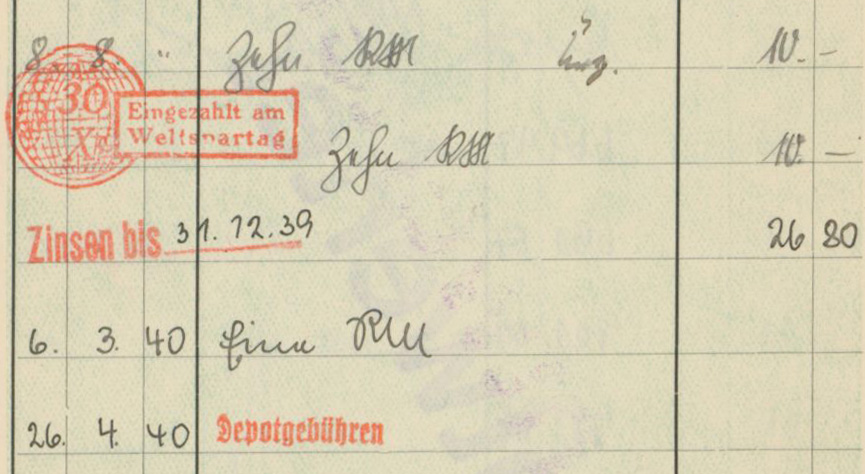 8. 8. " Zehn RM 10. –
30 X. Eingezahlt am
Weltspartag
Zehn RM 10. –
Zinsen bis 31.12.39 26 80
6. 3. 40 Eine RM
26. 4. 40 Depotgebühren